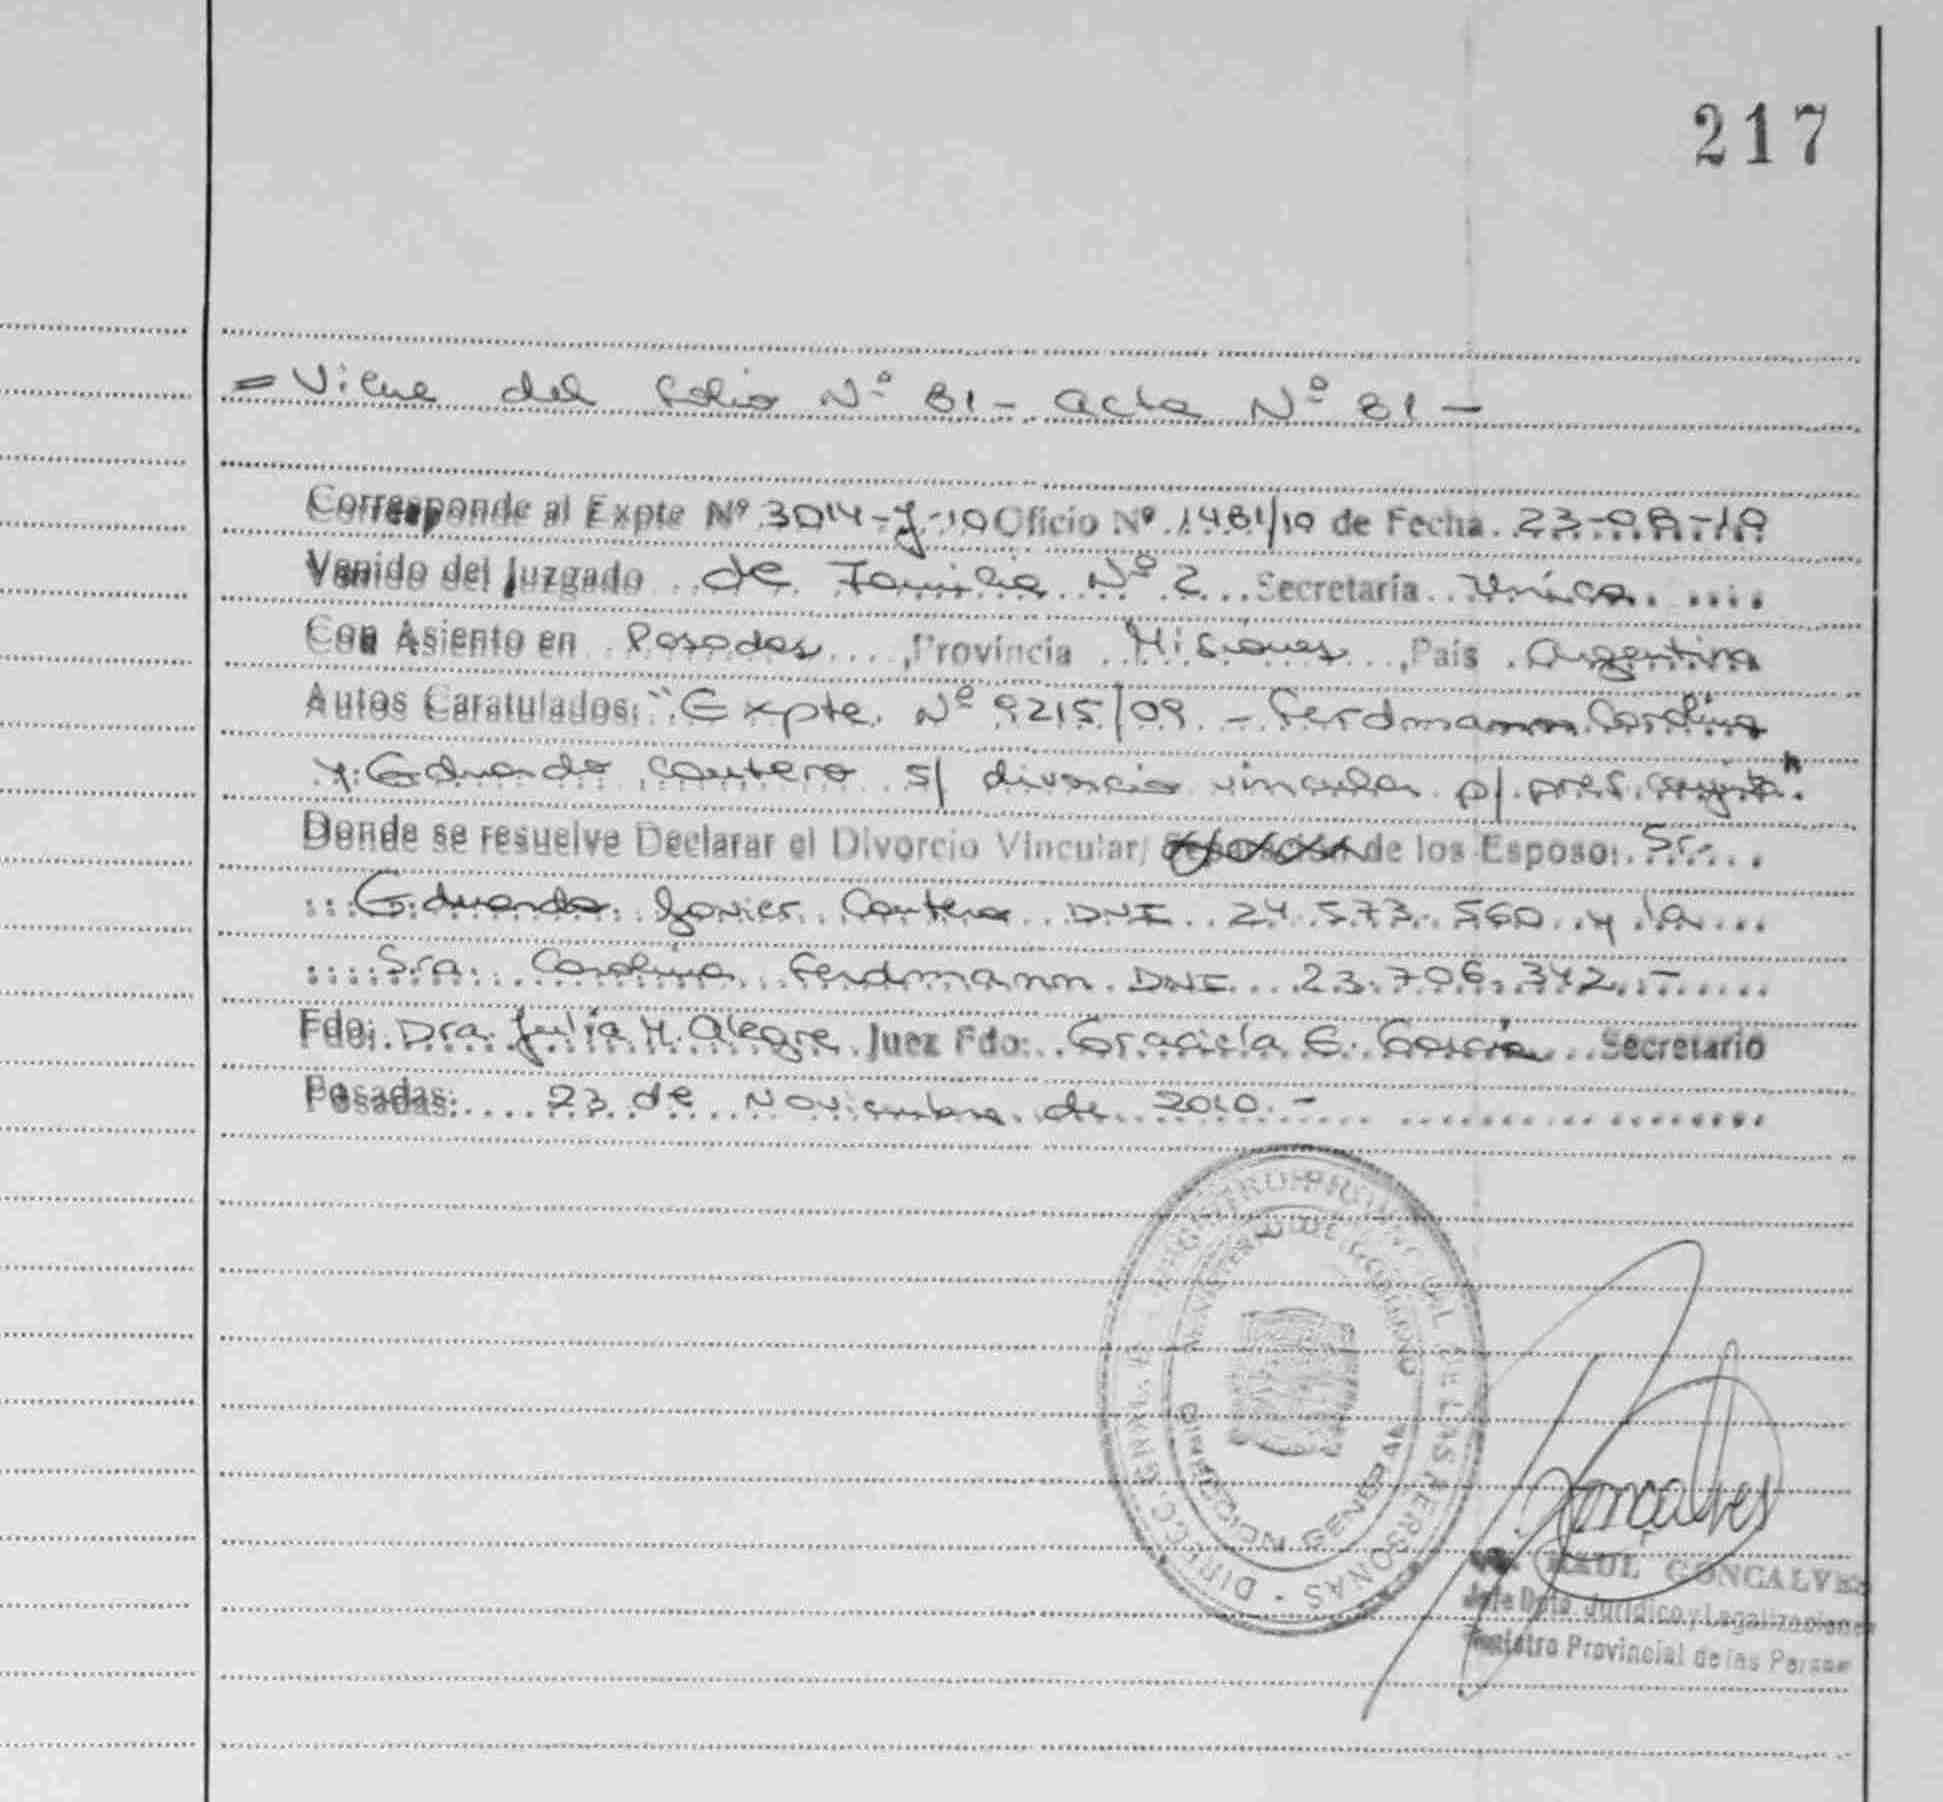 217
= Viene del Folio Nº 81 - acta Nº 81 -
Corresponde al Expte Nº 3014-J-10 Oficio Nº 1481/10 de Fecha 23-08-10
Venido del Juzgado de Familia Nº 2 Secretaría Única
Con Asiento en Posadas, Provincia Misiones, País Argentina
Autos Caratulados: "Expte. Nº 9215/09 - Ferdmann Carolina
y Eduardo Cantero s/ divorcio vincular p/ pres. conjunta".
Donde se resuelve Declarar el Divorcio Vincular/ Separación de los Esposo: Sr.
Eduardo Javier Cantero DNI 24.573.560 y la
Sra. Carolina Ferdmann DNI 23.706.342.-
Fdo: Dra. Julia M. Alegre Juez Fdo: Graciela E. García Secretario
Posadas: 23 de Noviembre de 2010.-
DIRECC. GRAL. REGISTRO PROVINCIAL DE LAS PERSONAS
MINISTERIO DE GOBIERNO
DIRECCION GENERAL
Goncalves
RAUL GONCALVES
Jefe Dpto. Jurídico y Legalizaciones
Registro Provincial de las Personas